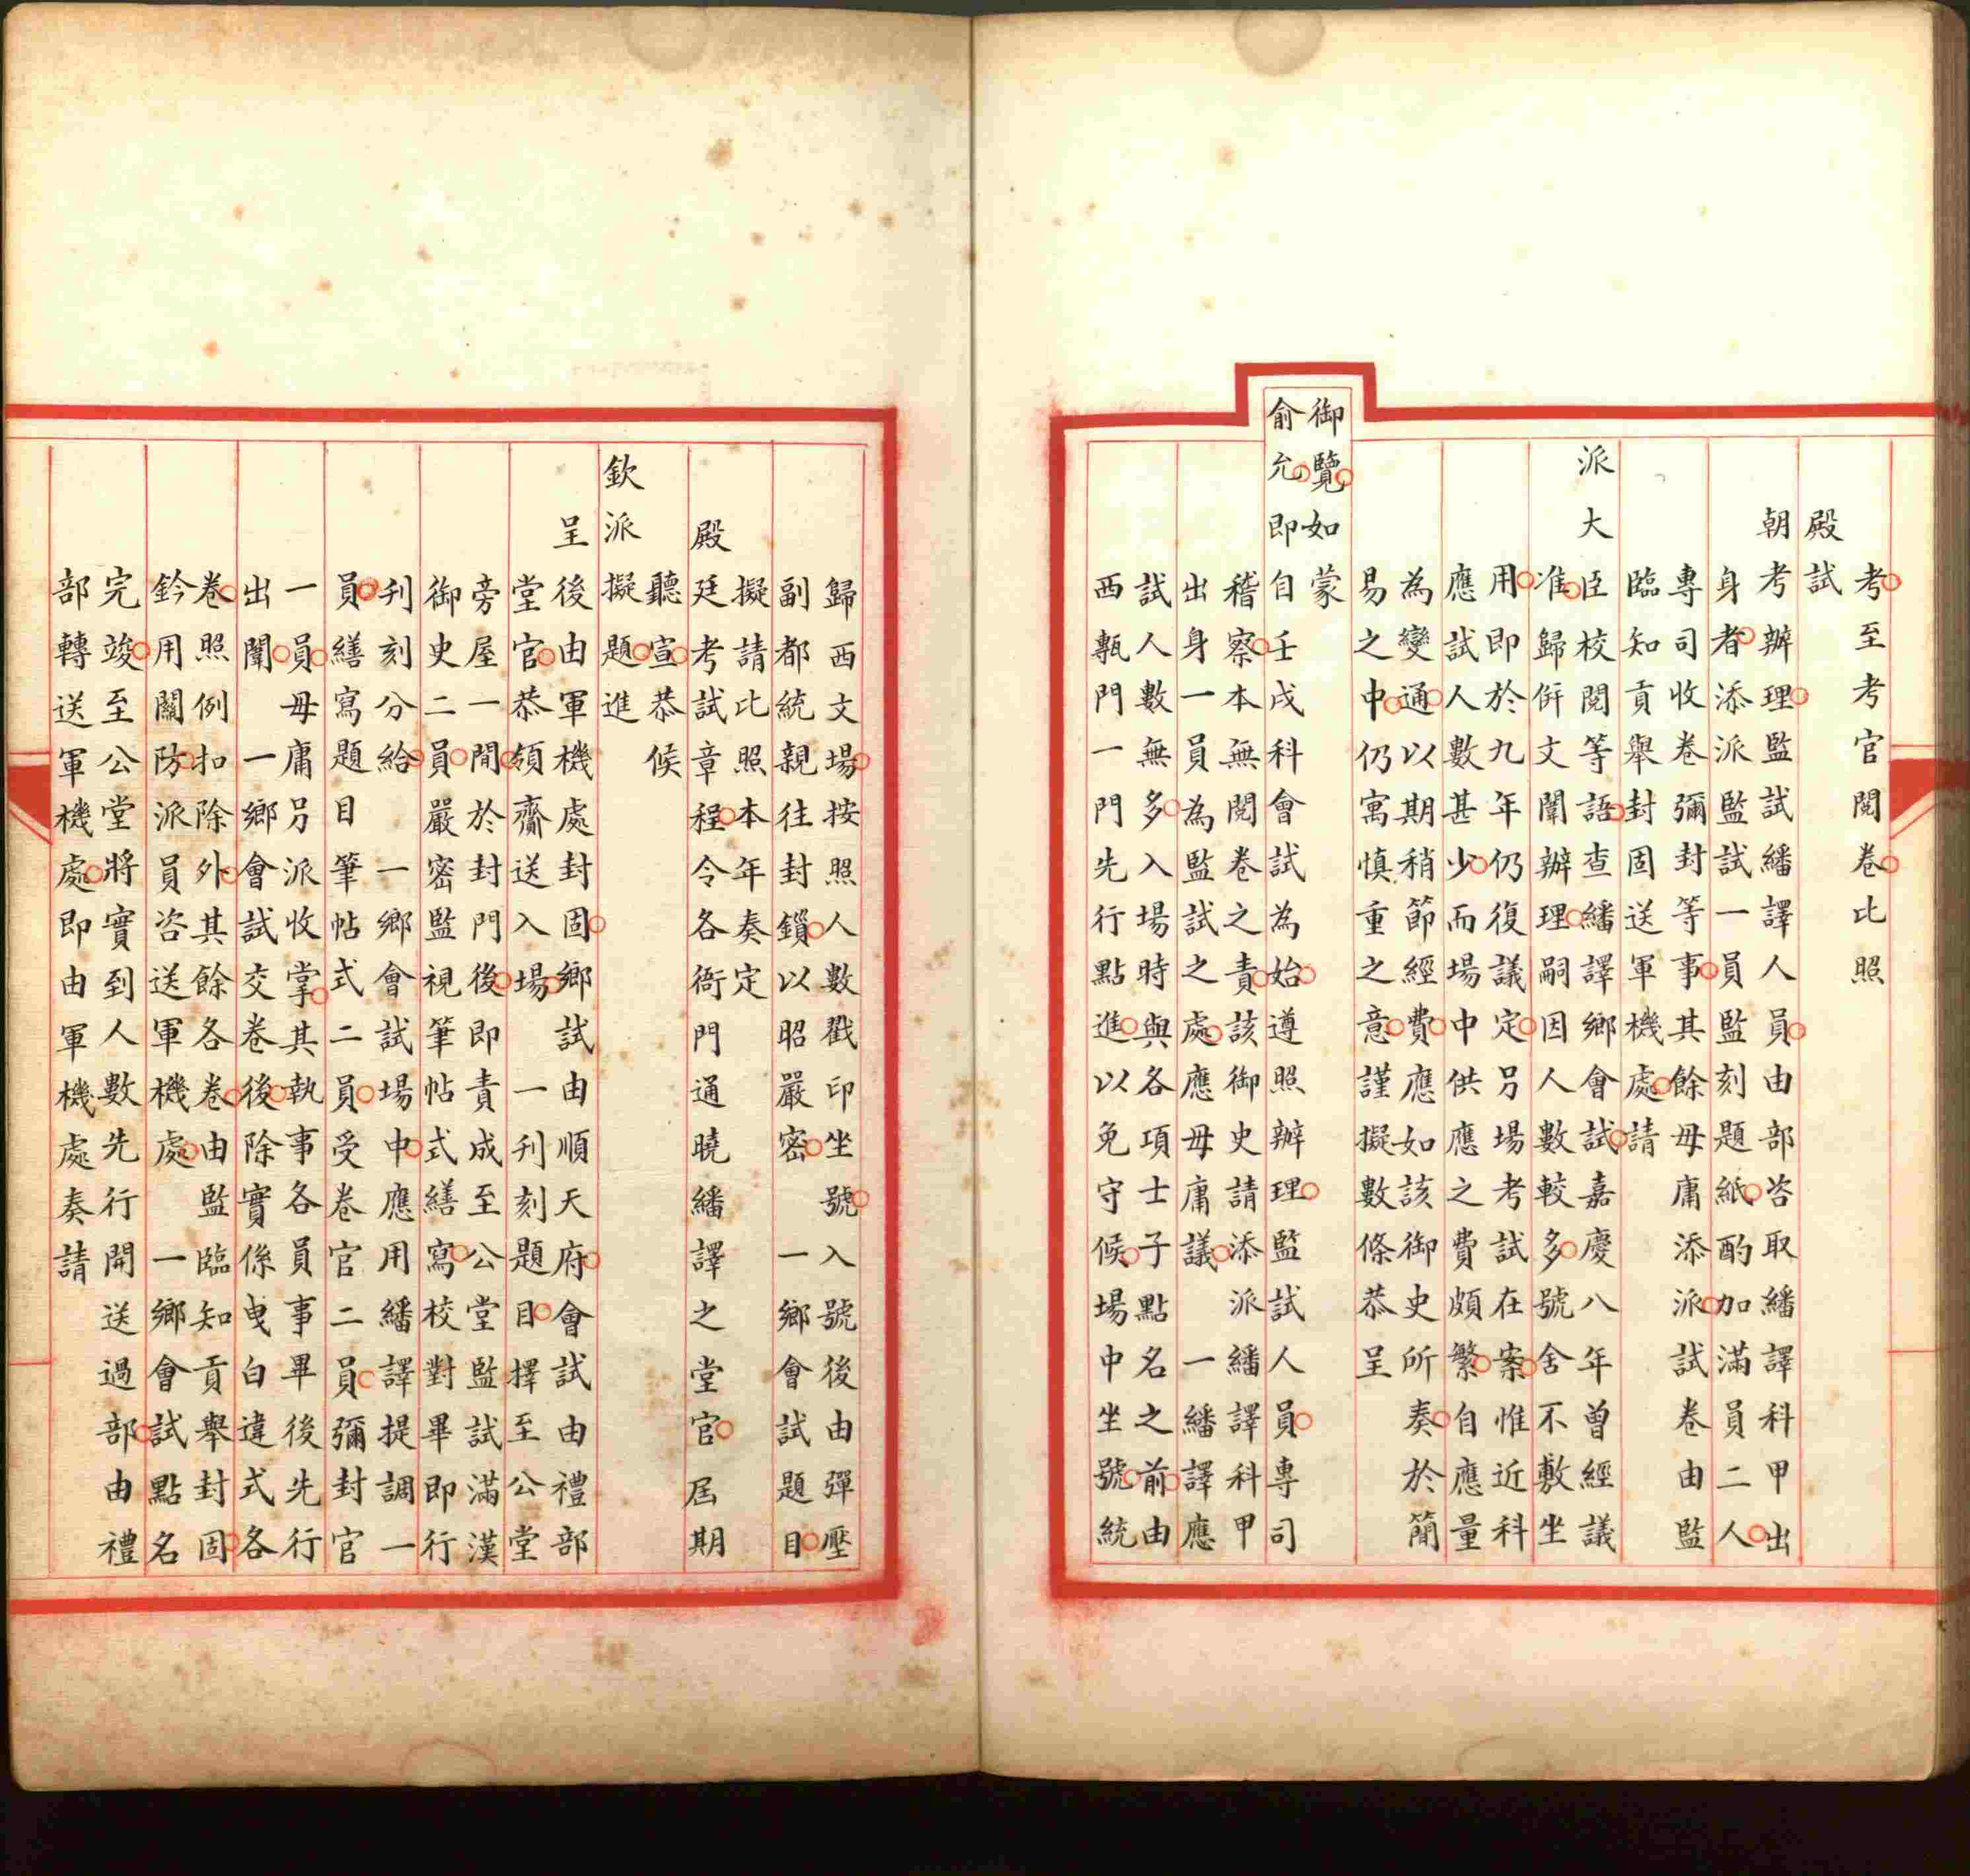 考至考官閱卷比照
殿試
朝考辦理監試繙譯人員由部咨取繙譯科甲出
身者添派監試一員監刻題紙酌加滿員二人
專司收卷彌封等事其餘毋庸添派試卷由監
臨知貢舉封固送軍機處請
派大臣校閱等語查繙譯鄉會試嘉慶八年曾經議
准歸併文闈辦理嗣因人數較多號舍不敷坐
用即於九年仍復議定另場考試在案惟近科
應試人數甚少而場中供應之費頗繁自應量
為變通以期稍節經費應如該御史所奏於簡
易之中仍寓慎重之意謹擬數條恭呈
御覽如蒙
俞允即自壬戌科會試為始遵照辦理監試人員專司
稽察本無閱卷之責該御史請添派繙譯科甲
出身一員為監試之處應毋庸議一繙譯應
試人數無多入場時與各項士子點名之前由
西甎門一門先行點進以免守候場中坐號統
歸西文場按照人數戳印坐號入號後由彈壓
副都統親往封鎖以昭嚴密一鄉會試題目
擬請比照本年奏定
殿廷考試章程令各衙門通曉繙譯之堂官屆期
聽宣恭候
欽派擬題進
呈後由軍機處封固鄉試由順天府會試由禮部
堂官恭領齎送入場一刊刻題目擇至公堂
旁屋一間於封門後即責成至公堂監試滿漢
御史二員嚴密監視筆帖式繕寫校對畢即行
刊刻分給一鄉會試場中應用繙譯提調一
員繕寫題目筆帖式二員受卷官二員彌封官
一員毋庸另派收掌其執事各員事畢後先行
出闈一鄉會試交卷後除實係曳白違式各
卷照例扣除外其餘各卷由監臨知貢舉封固
鈐用關防派員咨送軍機處一鄉會試點名
完竣至公堂將實到人數先行開送過部由禮
部轉送軍機處即由軍機處奏請